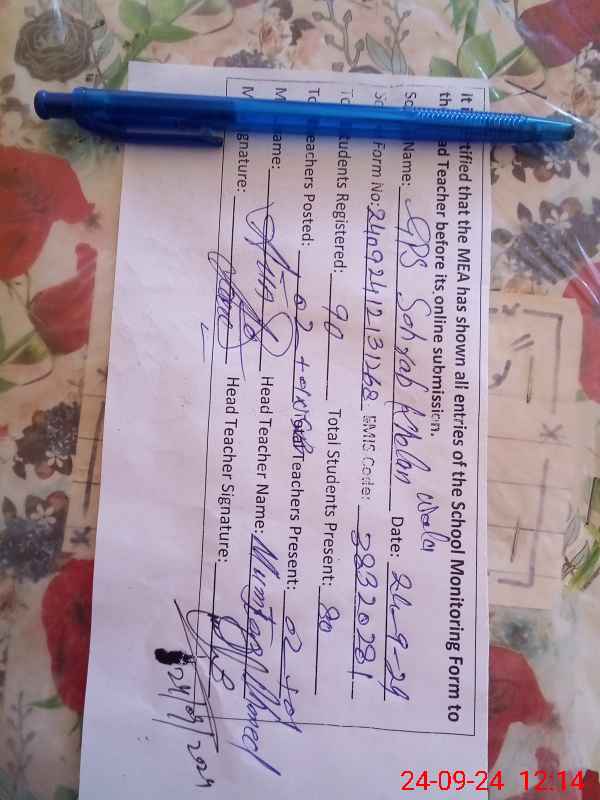 It is certified that the MEA has shown all entries of the School Monitoring Form to
the Head Teacher before its online submission.
Name: GPS Sohrab Khelan Wala Date: 24-9-24
Form No: 24092412131268 EMIS Code: 38320281
Students Registered: 90 Total Students Present: 80
Teachers Posted: 02 + 01 Total Teachers Present: 02 + 01
Name: Head Teacher Name: Mumtaz Ahmed
Signature: Head Teacher Signature:
24/09/2024
24-09-24 12:14